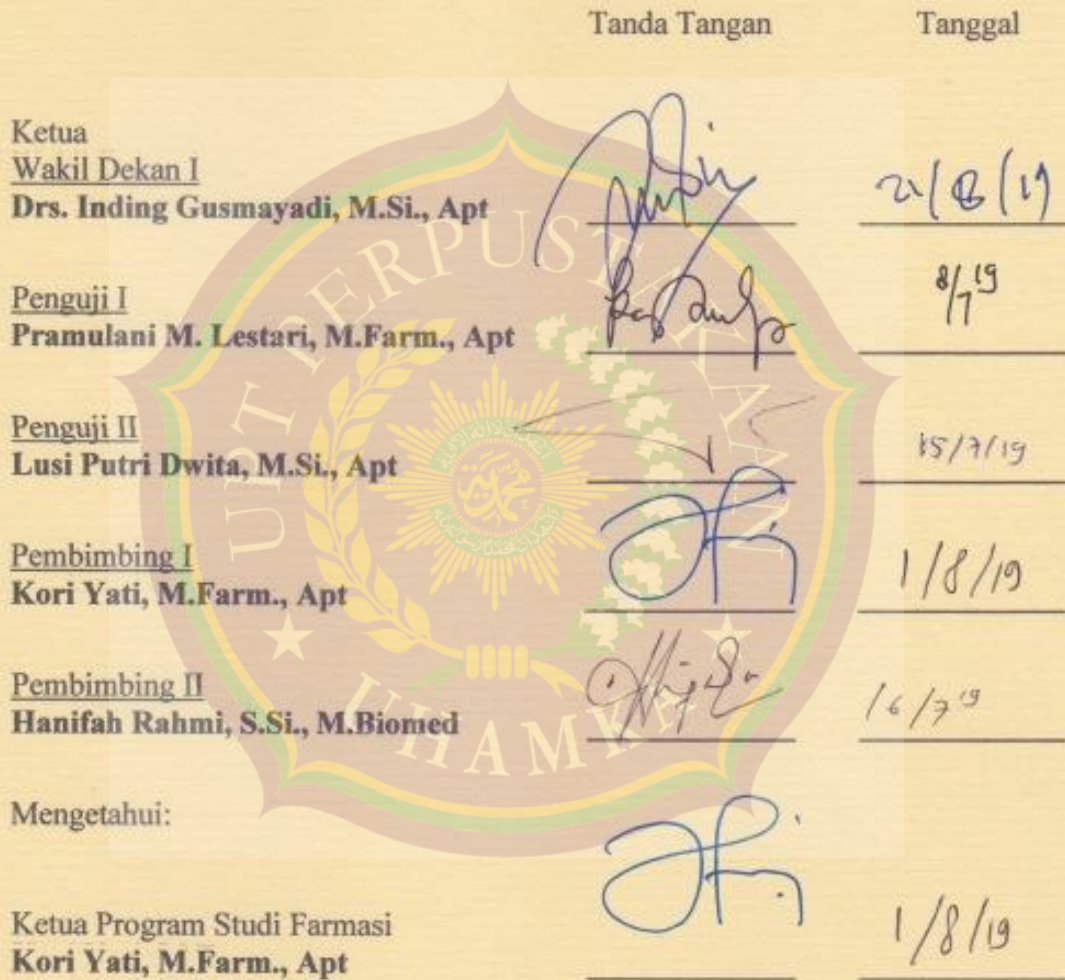 Tanda Tangan Tanggal
Ketua
Wakil Dekan I
Drs. Inding Gusmayadi, M.Si., Apt 21/8/19
Penguji I 8/7 19
Pramulani M. Lestari, M.Farm., Apt
Penguji II
Lusi Putri Dwita, M.Si., Apt 15/7/19
Pembimbing I
Kori Yati, M.Farm., Apt 1/8/19
Pembimbing II
Hanifah Rahmi, S.Si., M.Biomed 16/7 19
Mengetahui:
Ketua Program Studi Farmasi
Kori Yati, M.Farm., Apt 1/8/19
UPT PERPUSTAKAAN
UHAMKA